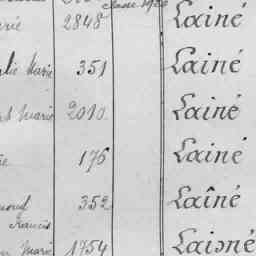 classe 1920
rie 2848 Lainé
lie Marie 351 Lainé
Marie 2010 Lainé
ie 176 Lainé
352 Laîné
Francis
Marie 1754 Laisné